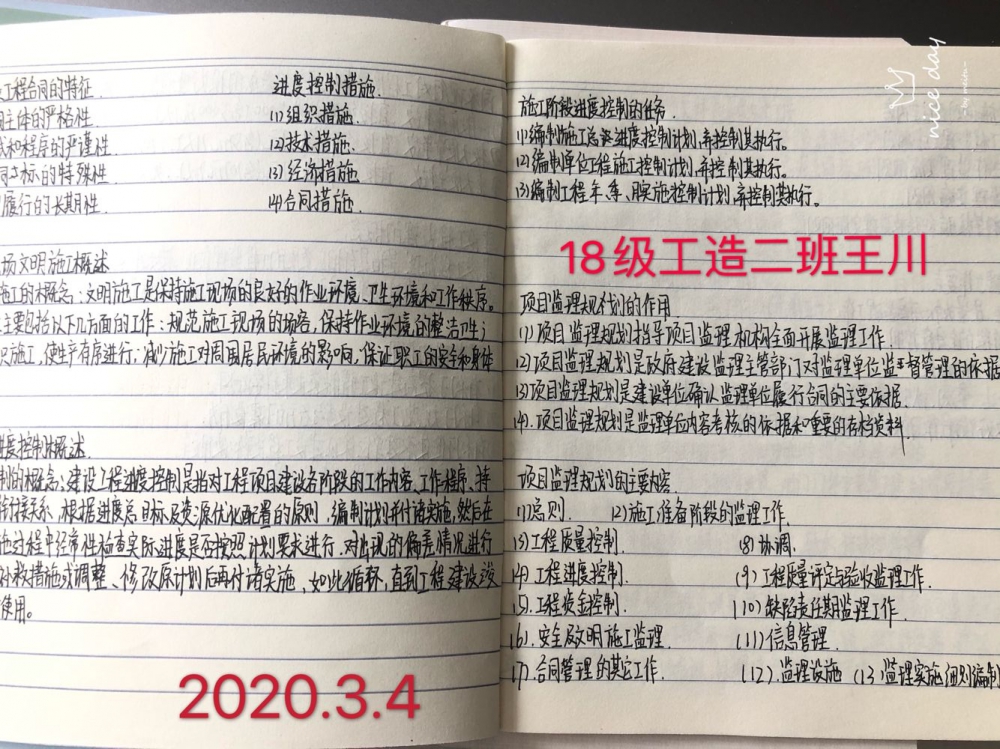 工程合同的特征
主体的严格性
式和程序的严谨性
同标的特殊性
履行的长期性
进度控制措施
(1)组织措施
(2)技术措施
(3)经济措施
(4)合同措施
场文明施工概述
施工的概念:文明施工是保持施工现场的良好的作业环境、卫生环境和工作秩序。
主要包括以下几方面的工作:规范施工现场的场容,保持作业环境的整洁卫生;
织施工,使生产有序进行;减少施工对周围居民环境的影响;保证职工的安全和身体
进度控制概述
制的概念:建设工程进度控制是指对工程项目建设各阶段的工作内容、工作程序、持
衔接关系,根据进度总目标及资源优化配置的原则,编制计划并付诸实施,然后在
施过程中经常性检查实际进度是否按照计划要求进行,对出现的偏差情况进行
补救措施或调整、修改原计划后再付诸实施,如此循环,直到工程建设竣
使用。
2020.3.4
nice day
施工阶段进度控制的任务
(1)编制施工总进度控制计划,并控制其执行。
(2)编制单位工程施工控制计划,并控制其执行。
(3)编制工程年、季、月实施控制计划,并控制其执行。
18级工造二班王川
项目监理规划的作用
(1)项目监理规划指导项目监理机构全面开展监理工作.
(2)项目监理规划是政府建设监理主管部门对监理单位监督管理的依据
(3)项目监理规划是建设单位确认监理单位履行合同的主要依据.
(4).项目监理规划是监理单位内容考核的依据和重要的存档资料.
项目监理规划的主要内容
(1)总则. (2)施工准备阶段的监理工作.
(3)工程质量控制. (8)协调.
(4)工程进度控制. (9)工程质量评定与验收监理工作.
(5).工程资金控制. (10)缺陷责任期监理工作.
(6).安全及文明施工监理 (11)信息管理.
(7).合同管理的其它工作. (12).监理设施 (13)监理实施细则编制